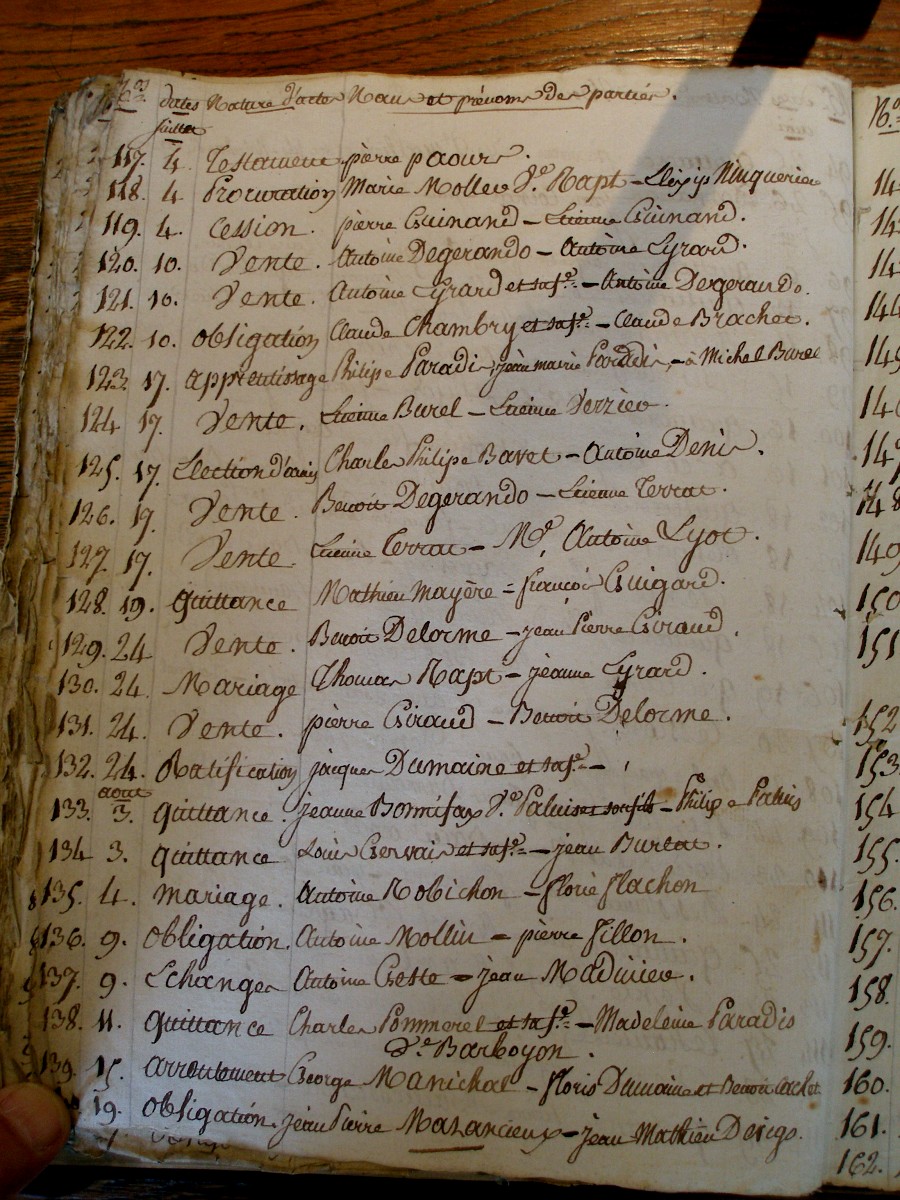 N.os dates Nature d'actes Noms et prénoms des parties.
juillet
117. 4. Testament pierre paours.
118. 4 Procuration Marie Mollee V.e Rapt -
119. 4. Cession. pierre Guinand - Etienne Guinand.
120. 10. Vente. Antoine Degerando - Antoine Lyrard.
121. 10. Vente. Antoine Lyrard et sa f.e - Antoine Degerando.
122. 10. obligation Claude Chambry et sa f.e - Claude Brachet.
123. 17. apprentissage Philipe Paradis, jean marie Paradis, - à Michel Burel
124 17. Vente. Etienne Burel - Etienne Verzieo.
125. 17. Election d'amis Charles Philipe Bavet - Antoine Denis.
126. 17. Vente. Benoit Degerando - Etienne Terrat.
127. 17. Vente Etienne Terrat - M.e Antoine Lyot.
128. 19. quittance Mathieu Mayère = françois Guigard.
129. 24 Vente. Benoit Delorme - jean Pierre Giraud.
130. 24. Mariage Thomas Rapt - jeanne Lyrard.
131. 24. Vente. pierre Giraud - Benoit Delorme.
132. 24. Ratification jacques Dumaine et sa f.e -
aout
133. 3. quittance. jeanne Bonnifax V.e Paluis et son fils - Philipe Paluis
134 3. quittance Louis Gervais et sa f.e - jean Burlat.
135. 4. mariage. Antoine Robichon - florie flachon
136. 9. obligation. Antoine Mollin = pierre fillon.
137. 9. Echanges Antoine Geste = jean Madinier.
138. 11. quittance Charles Pommerel et sa f.e - Madeleine Paradis
V.e Barboyon.
139. 15. arrentement George Manichal - floris Dumaine et Benoit Cachet
19. obligation. jean Pierre Mazancieux - jean Mathieu
N.o
144
149
150
151
152
153.
154
155.
156.
157.
158.
159.
160.
161.
162.